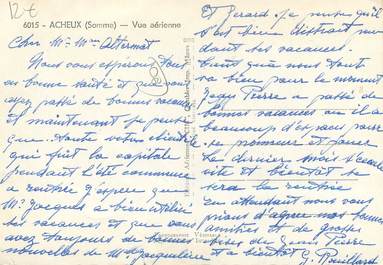 12€
6015 - ACHEUX (Somme) — Vue aérienne
Cher Mr Mme Altermat
Nous vous espérons tous en
bonne santé et que vous
ayez passé de bonnes vacances
et maintenant je pense
que toute votre clientèle
qui fuit la capitale
pendant l'été commence
a rentrée j'espère que
Mr Jacques a bien utilisé
ses vacances et que vous
avez toujours de bonnes
nouvelles de Mr Jacqueline
Et Gerard. Je pense qu'il
s'est bien distrait pen
dant ses vacances.
que nous tout
va bien pour le moment
Jean Pierre a passé de
bonnes vacances ou il a
beaucoup d'espace pour
se promener et jouer
Le dernier mois s'écoule
vite et bientôt se
sera la rentrée
En attendant nous vous
prions d'agréer nos bonnes
amitiés et de grosses
bises de Jean Pierre
et a bientôt